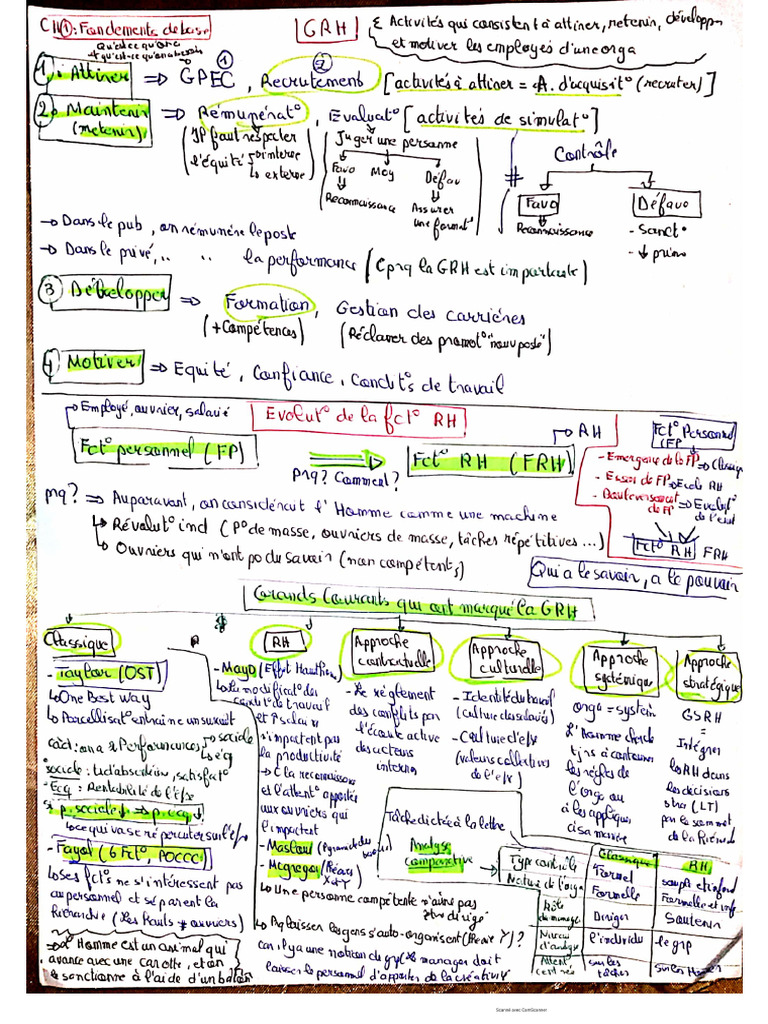 CH1: Fondements de base
GRH
Activités qui consistent à attirer, retenir, développer
et motiver les employés d'une orga
1: Attirer => GPEC, Recrutement [activités à attirer = A. d'acquisit° (recruter)]
2: Maintenir (retenir) => Rémunérat°, Evaluat° [activités de simulat°]
Il faut respecter
l'équité interne
externe
Juger une personne
Favo Moy Défav
Reconnaissance
Assurer
une format°
≠
Contrôle
Favo Défavo
Reconnaissance
- Sanct°
- ↓ prime
→ Dans le pub, on rémunère le poste
→ Dans le privé, .. .. la performance (Cprq la GRH est importante)
3 Développer => Formation, Gestion des carrières
(+ Compétences) (Réclaver des promot° "nouv poste")
4 Motiver => Equité, Confiance, Condit°s de travail
Employé, ouvrier, salarié
Evolut° de la fct° RH
Fct° personnel (FP)
prq? Comment?
Fct° RH (FRH)
RH
Fct° Personnel
(FP
- Emergence de la FP
- Essor de FP → Ecole RH
- Bouleversement
de FP → Evolut°
Fct° RH FRH
prq? => Auparavant, on considérait l'Homme comme une machine
↳ Révolut° ind (P° de masse, ouvriers de masse, tâches répétitives ...)
↳ Ouvriers qui n'ont po du savoir (non compétents)
Qui a le savoir, a le pouvoir
Grands courants qui ont marqué la GRH
Classique
- Taylor (OST)
↳ One Best Way
↳ Parcellisat° entraîne un
càd: on a 2 Performances sociale
éq
sociale: absentéisme, satisfact°
- Ecq: Rentabilité de l'E/se
si p. sociale ↓ => p. ecq ↓
↳ ce qui va se répercuter sur l'E/se
- Fayol (6 Fct°, POCCC)
↳ Ses fcts ne s'intéressent pas
au personnel et séparent la
hiérarchie (les Hauts ≠ ouvriers)
=> L'Homme est un animal qui
avance avec une carotte, et on
le sanctionne à l'aide d'un bâton
RH
- Mayo (Effet Hawthorne)
↳ La modificat° des
condit° de travail
et
impactent pas
la productivité
→ C la reconnaissance
et l'attent° apportée
aux ouvriers qui
l'impactent
- Maslow (Pyramide des
- Mcgregor (Théories
X et Y)
↳ Une personne compétente n'aime pas
être dirigé
↳ laisser les gens s'auto-organisent (théorie Y)?
car il y a une notion de grp & manager doit
laisser le personnel d'apporter de la créativité
Approche
contractuelle
- Le règlement
des conflits par
l'écoute active
des acteurs
internes
Approche
culturelle
- Identité du travail
(culture des salariés)
- Culture d'e/se
(valeurs collectives
de l'e/se)
Approche
systémique
orga = système
L'Homme cherche
tjrs à contourner
les règles de
l'orga ou
à les appliquer
à sa manière
Approche
stratégique
GSRH
=
Intégrer
les RH dans
les décisions
strat (LT)
par le sommet
de la hiérarchie
Tâche dictée à la lettre
Analyse
comparative
Classique RH
Type contrôle Formel souple et infond
Nature de l'orga Formelle Formelle et inf
Rôle du manager Diriger Soutenir
Niveau d'analyse l'individu le grp
Attent° centrée sur les tâches sur les Hommes
Scanné avec CamScanner